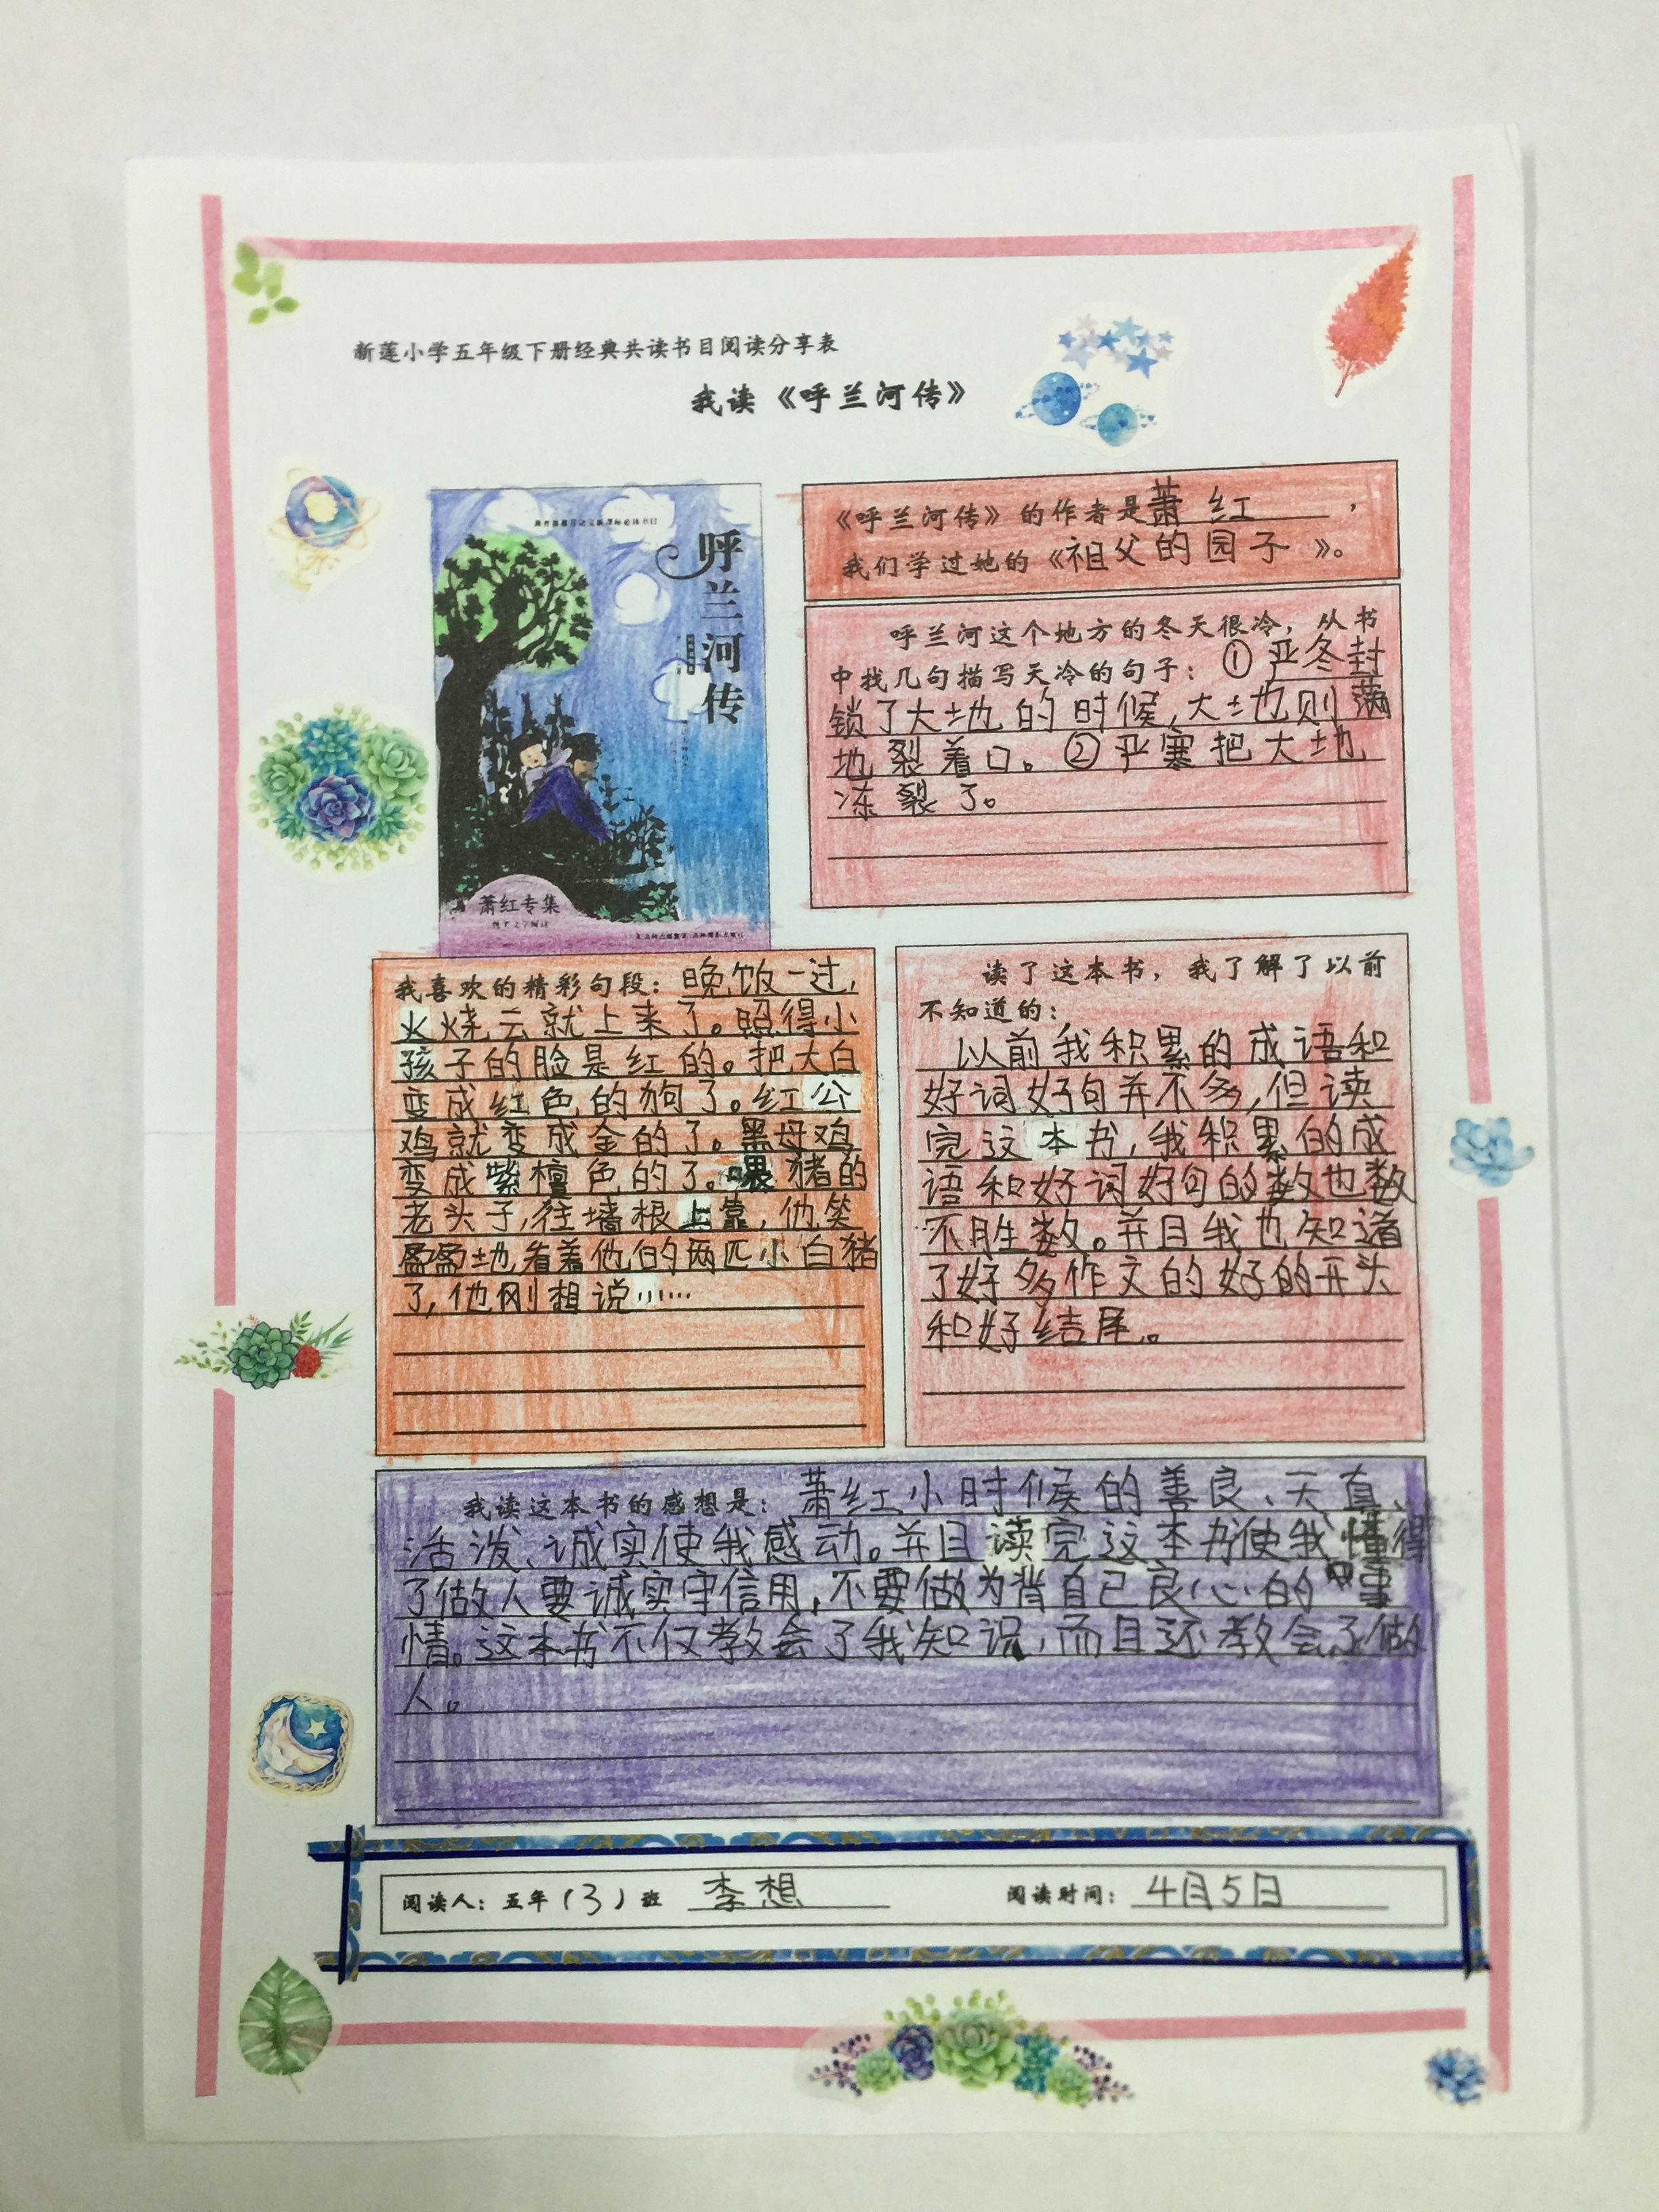 新莲小学五年级下册经典共读书目阅读分享表
我读《呼兰河传》
呼兰河传
萧红专集
《呼兰河传》的作者是萧红，
我们学过她的《祖父的园子》。
呼兰河这个地方的冬天很冷，从书
中找几句描写天冷的句子：①严冬封
锁了大地的时候，大地则满
地裂着口。②严寒把大地
冻裂了。
我喜欢的精彩句段：晚饭一过，
火烧云就上来了。照得小
孩子的脸是红的。把大白
变成红色的狗了。红公
鸡就变成金的了。黑母鸡
变成紫檀色的了。喂猪的
老头子，往墙根上靠，他笑
盈盈地看着他的两匹小白猪
了，他刚想说……
读了这本书，我了解了以前
不知道的：
以前我积累的成语和
好词好句并不多，但读
完这本书，我积累的成
语和好词好句的数也数
不胜数。并且我也知道
了好多作文的好的开头
和好结尾。
我读这本书的感想是：萧红小时候的善良、天真、
活泼、诚实使我感动。并且读完这本书使我懂得
了做人要诚实守信用，不要做为背自己良心的事
情。这本书不仅教会了我知识，而且还教会了做
人。
阅读人：五年（3）班 李想 阅读时间：4月5日